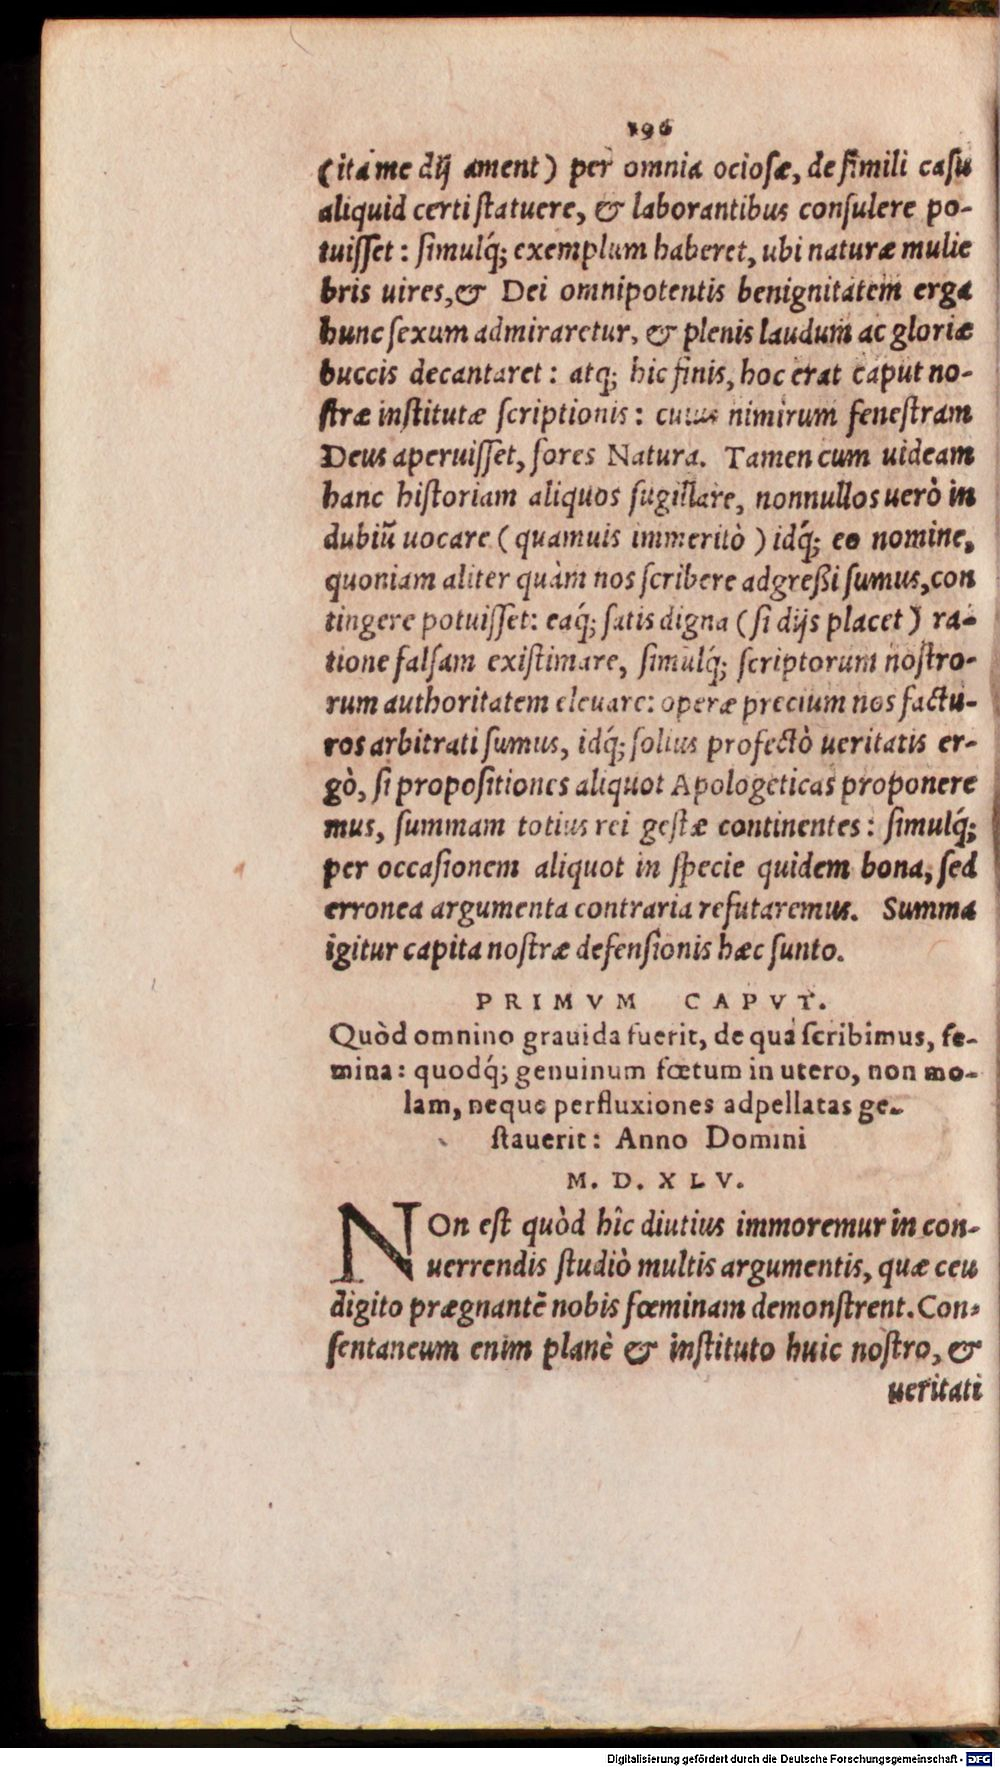 196
(ita me dij ament) per omnia ociosæ, de simili casu
aliquid certi statuere, & laborantibus consulere po-
tuisset: simulq́; exemplum haberet, ubi naturæ mulie
bris uires, & Dei omnipotentis benignitatem erga
hunc sexum admiraretur, & plenis laudum ac gloriæ
buccis decantaret: atq; hic finis, hoc erat caput no-
stræ institutæ scriptionis: cuius nimirum fenestram
Deus aperuisset, fores Natura. Tamen cum uideam
hanc historiam aliquos sugillare, nonnullos uerò in
dubiũ uocare (quamuis immeritò) idq́; eo nomine,
quoniam aliter quàm nos scribere adgreßi sumus, con
tingere potuisset: eaq́; satis digna (si dijs placet) ra-
tione falsam existimare, simulq́; scriptorum nostro-
rum authoritatem eleuare: operæ precium nos factu-
ros arbitrati sumus, idq́; solius profectò ueritatis er-
gò, si propositiones aliquot Apologeticas proponere
mus, summam totius rei gestæ continentes: simulq́;
per occasionem aliquot in specie quidem bona, sed
erronea argumenta contraria refutaremus. Summa
igitur capita nostræ defensionis hæc sunto.
PRIMVM CAPVT.
Quòd omnino grauida fuerit, de qua scribimus, fe-
mina: quodq́; genuinum fœtum in utero, non mo-
lam, neque perfluxiones adpellatas ge-
stauerit: Anno Domini
M. D. XLV.
NOn est quòd hîc diutius immoremur in con-
uerrendis studiò multis argumentis, quæ ceu
digito prægnantẽ nobis fœminam demonstrent. Con-
sentaneum enim planè & instituto huic nostro, &
ueritati
Digitalisierung gefördert durch die Deutsche Forschungsgemeinschaft - DFG